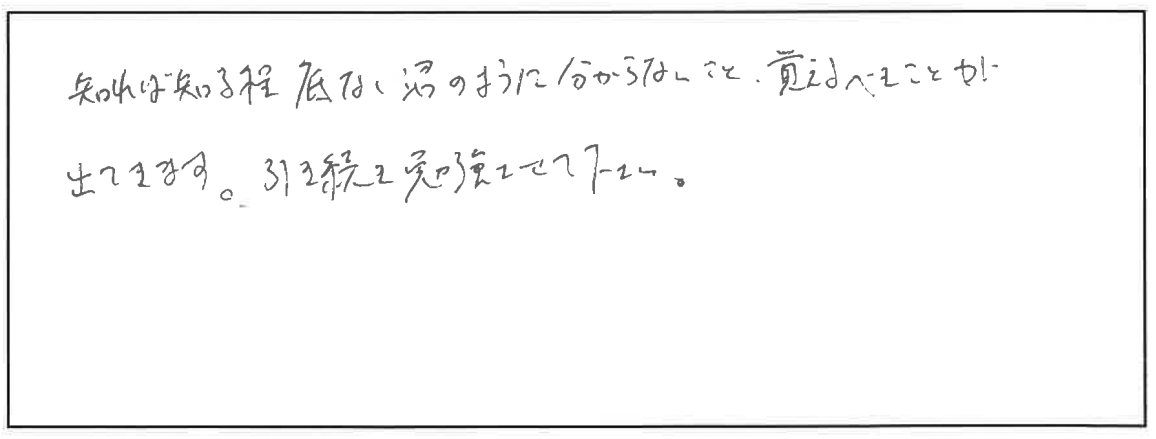 知れば知る程底ない沼のように分からないこと、覚えるべきことが
出てきます。引き続き勉強させて下さい。